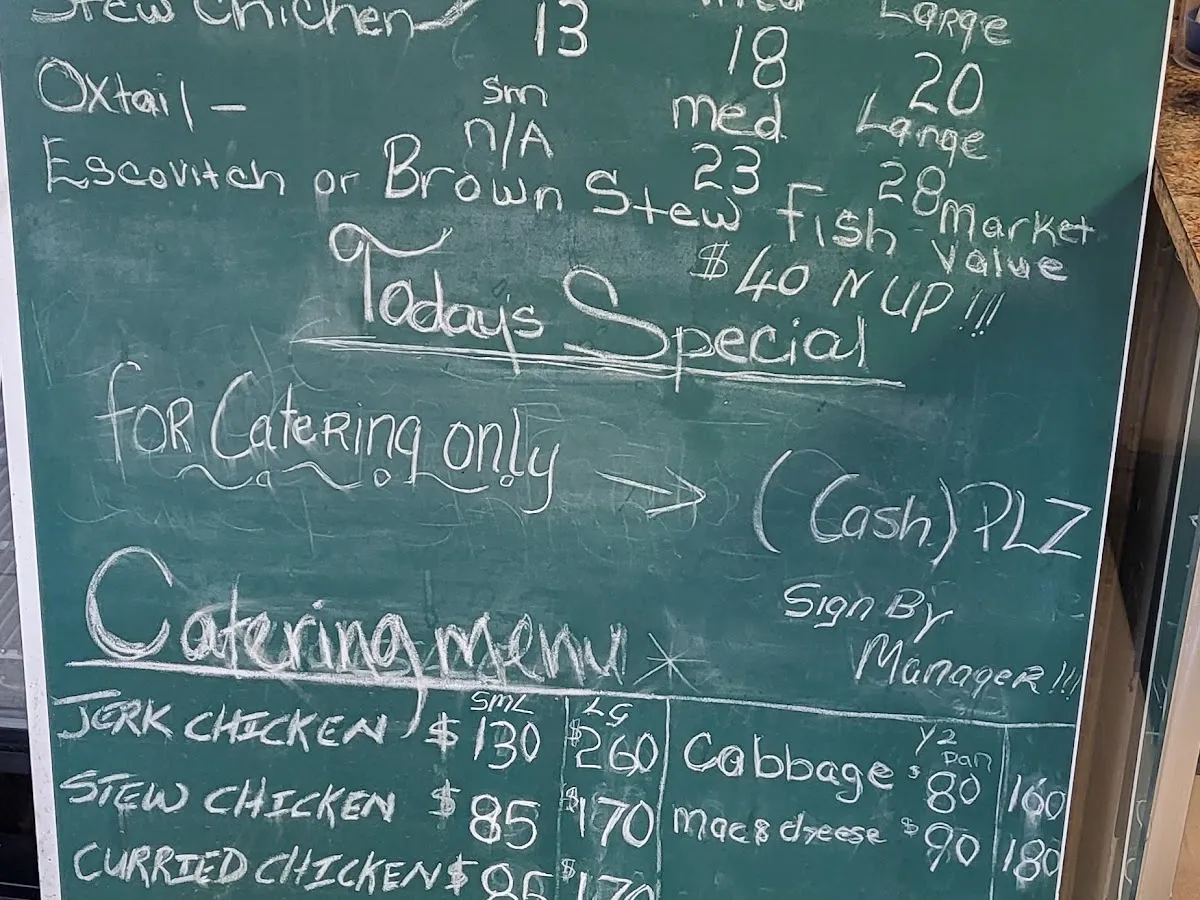 Stew Chicken 13 18 Large 20
Oxtail - sm n/A med 23 Large 28
Escovitch or Brown Stew Fish Market Value
$40 N UP!!!
Today's Special
FOR CateRing only → (Cash) PLZ
Sign By
ManageR!!!
Catering menu *
SML LG
JERK CHICKEN $130 $260
STEW CHICKEN $85 $170
CURRIED CHICKEN $85 $170
1/2 pan
Cabbage $80 160
mac & cheese $90 180